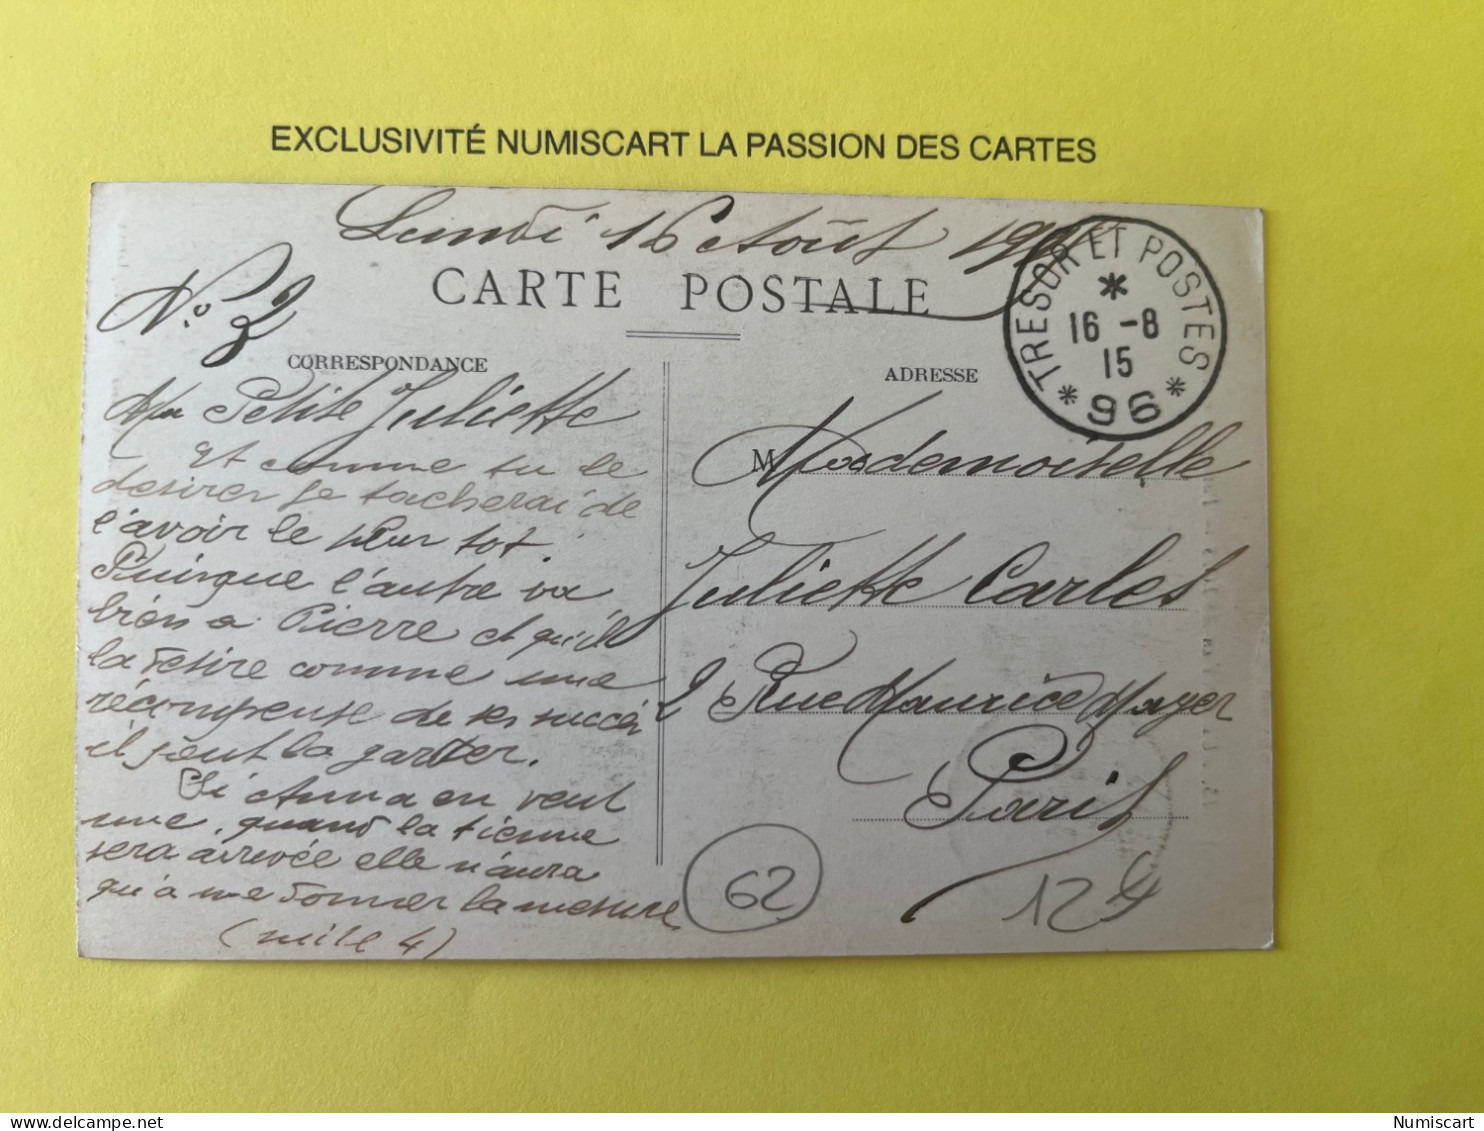 EXCLUSIVITÉ NUMISCART LA PASSION DES CARTES
Lundi 16 Août 191
No. 3
CARTE POSTALE
TRESOR ET POSTES
16 -8
15
* 96 *
CORRESPONDANCE
ADRESSE
Ma Petite Juliette
Et comme tu le
desirer je tacherai de
l'avoir le plus tot.
Puisque l'autre va
bien a Pierre et qu'il
la desire comme une
récompense de ses succés
il peut la garder.
Si Anna en veut
une, quand la tienne
sera arrivée elle n'aura
qu'a me donner la mesure
(suite 4)
M Mademoiselle
Juliette Carles
2 Rue Maurice Mayer
Paris
62
12
Numiscart